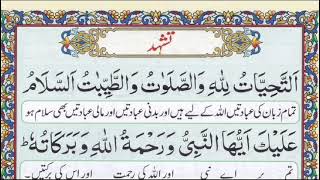 تشہد
اَلتَّحِيَّاتُ لِلّٰهِ وَالصَّلَوٰتُ وَالطَّيِّبٰتُ اَلسَّلَامُ
تمام زبان کی عبادتیں اللہ کے لیے ہیں اور بدنی عبادتیں اور مالی عبادتیں بھی سلام ہو
عَلَيْكَ اَيُّهَا النَّبِيُّ وَرَحْمَةُ اللهِ وَبَرَكَاتُهٗ ط
تم پر اے نبی اور اللہ کی رحمت اور اس کی برکتیں۔